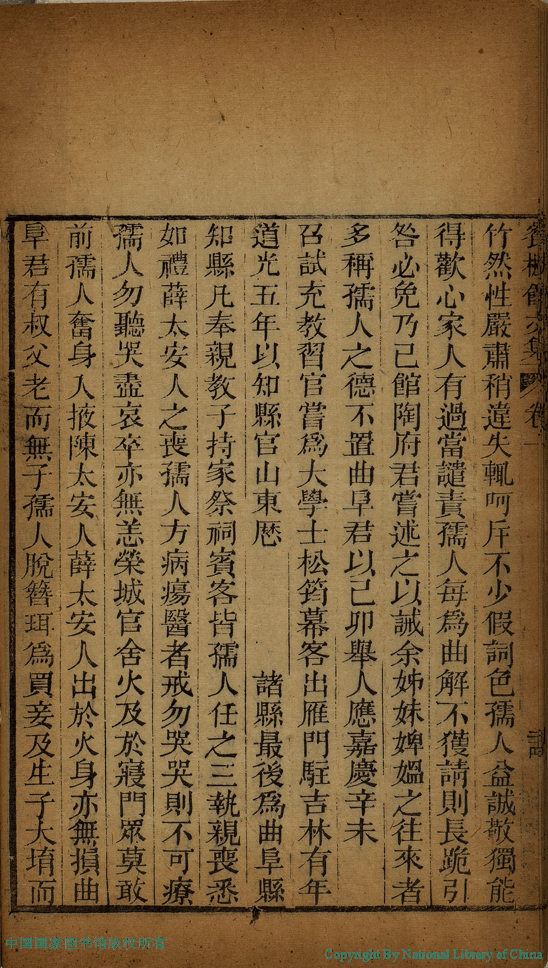 竹然性嚴肅稍違失輒呵斥不少假詞色孺人益誠敬獨能
得歡心家人有過當譴責孺人每為曲解不獲請則長跪引
咎必免乃已館陶府君嘗述之以誡余姊妹婢媼之往來者
多稱孺人之德不置曲阜君以己卯舉人應嘉慶辛未
召試充教習官嘗為大學士松筠幕客出雁門駐吉林有年
道光五年以知縣官山東歷 諸縣最後為曲阜縣
知縣凡奉親教子持家祭祠賓客皆孺人任之三執親喪悉
如禮薛太安人之喪孺人方病瘍醫者戒勿哭哭則不可療
孺人勿聽哭盡哀卒亦無恙榮城官舍火及於寢門眾莫敢
前孺人奮身入掖陳太安人薛太安人出於火身亦無損曲
阜君有叔父老而無子孺人脫簪珥為買妾及生子大堉而
中国国家图书馆版权所有
Copyright By National Library of China